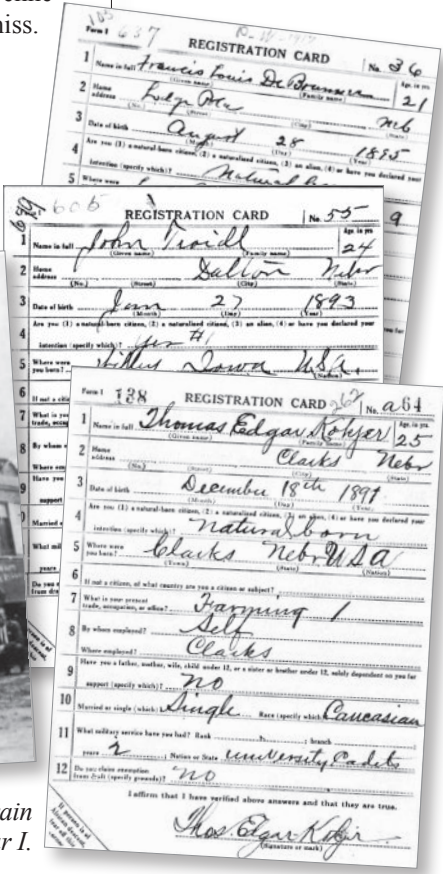 miss.
Form 1 637
REGISTRATION CARD No. 36
1 Name in full Francis Louis De Age, in yrs. 21
(Given name) (Family name)
2 Home address Neb
(No.) (Street) (City) (State)
3 Date of birth August 28 1895
(Month) (Day) (Year)
4 Are you (1) a natural-born citizen, (2) a naturalized citizen, (3) an alien, (4) or have you declared your
intention (specify which)? Natural
5 Where were
9
605
REGISTRATION CARD No. 55
1 Name in full John Troidl Age, in yrs. 24
(Given name) (Family name)
2 Home address Dalton Nebr
(No.) (Street) (City) (State)
3 Date of birth Jan 27 1893
(Month) (Day) (Year)
4 Are you (1) a natural-born citizen, (2) a naturalized citizen, (3) an alien, (4) or have you declared your
intention (specify which)? Yes #1
5 Where were you born? Iowa USA
(Nation)
6 If not a
7 What is your
trade,
8 By whom
Where
9 Have you
support
Married
What
years
Do you
from
Form 1 138 REGISTRATION CARD 262 No. a64
1 Name in full Thomas Edgar Age, in yrs. 25
(Given name) (Family name)
2 Home address Clarks Nebr
(No.) (Street) (City) (State)
3 Date of birth December 18th 1891
(Month) (Day) (Year)
4 Are you (1) a natural-born citizen, (2) a naturalized citizen, (3) an alien, (4) or have you declared your
intention (specify which)? natural born
5 Where were you born? Clarks Nebr USA
(Town) (State) (Nation)
6 If not a citizen, of what country are you a citizen or subject?
7 What is your present trade, occupation, or office? Farming 1
8 By whom employed? Self
Where employed? Clarks
9 Have you a father, mother, wife, child under 12, or a sister or brother under 12, solely dependent on you for
support (specify which)? NO
10 Married or single (which)? Single Race (specify which)? Caucasian
11 What military service have you had? Rank ; branch ;
years 2 ; Nation or State University Cadets
12 Do you claim exemption from draft (specify grounds)? NO
I affirm that I have verified above answers and that they are true.
Thos. Edgar
(Signature or mark)
If person is of
African descent,
ain
r I.